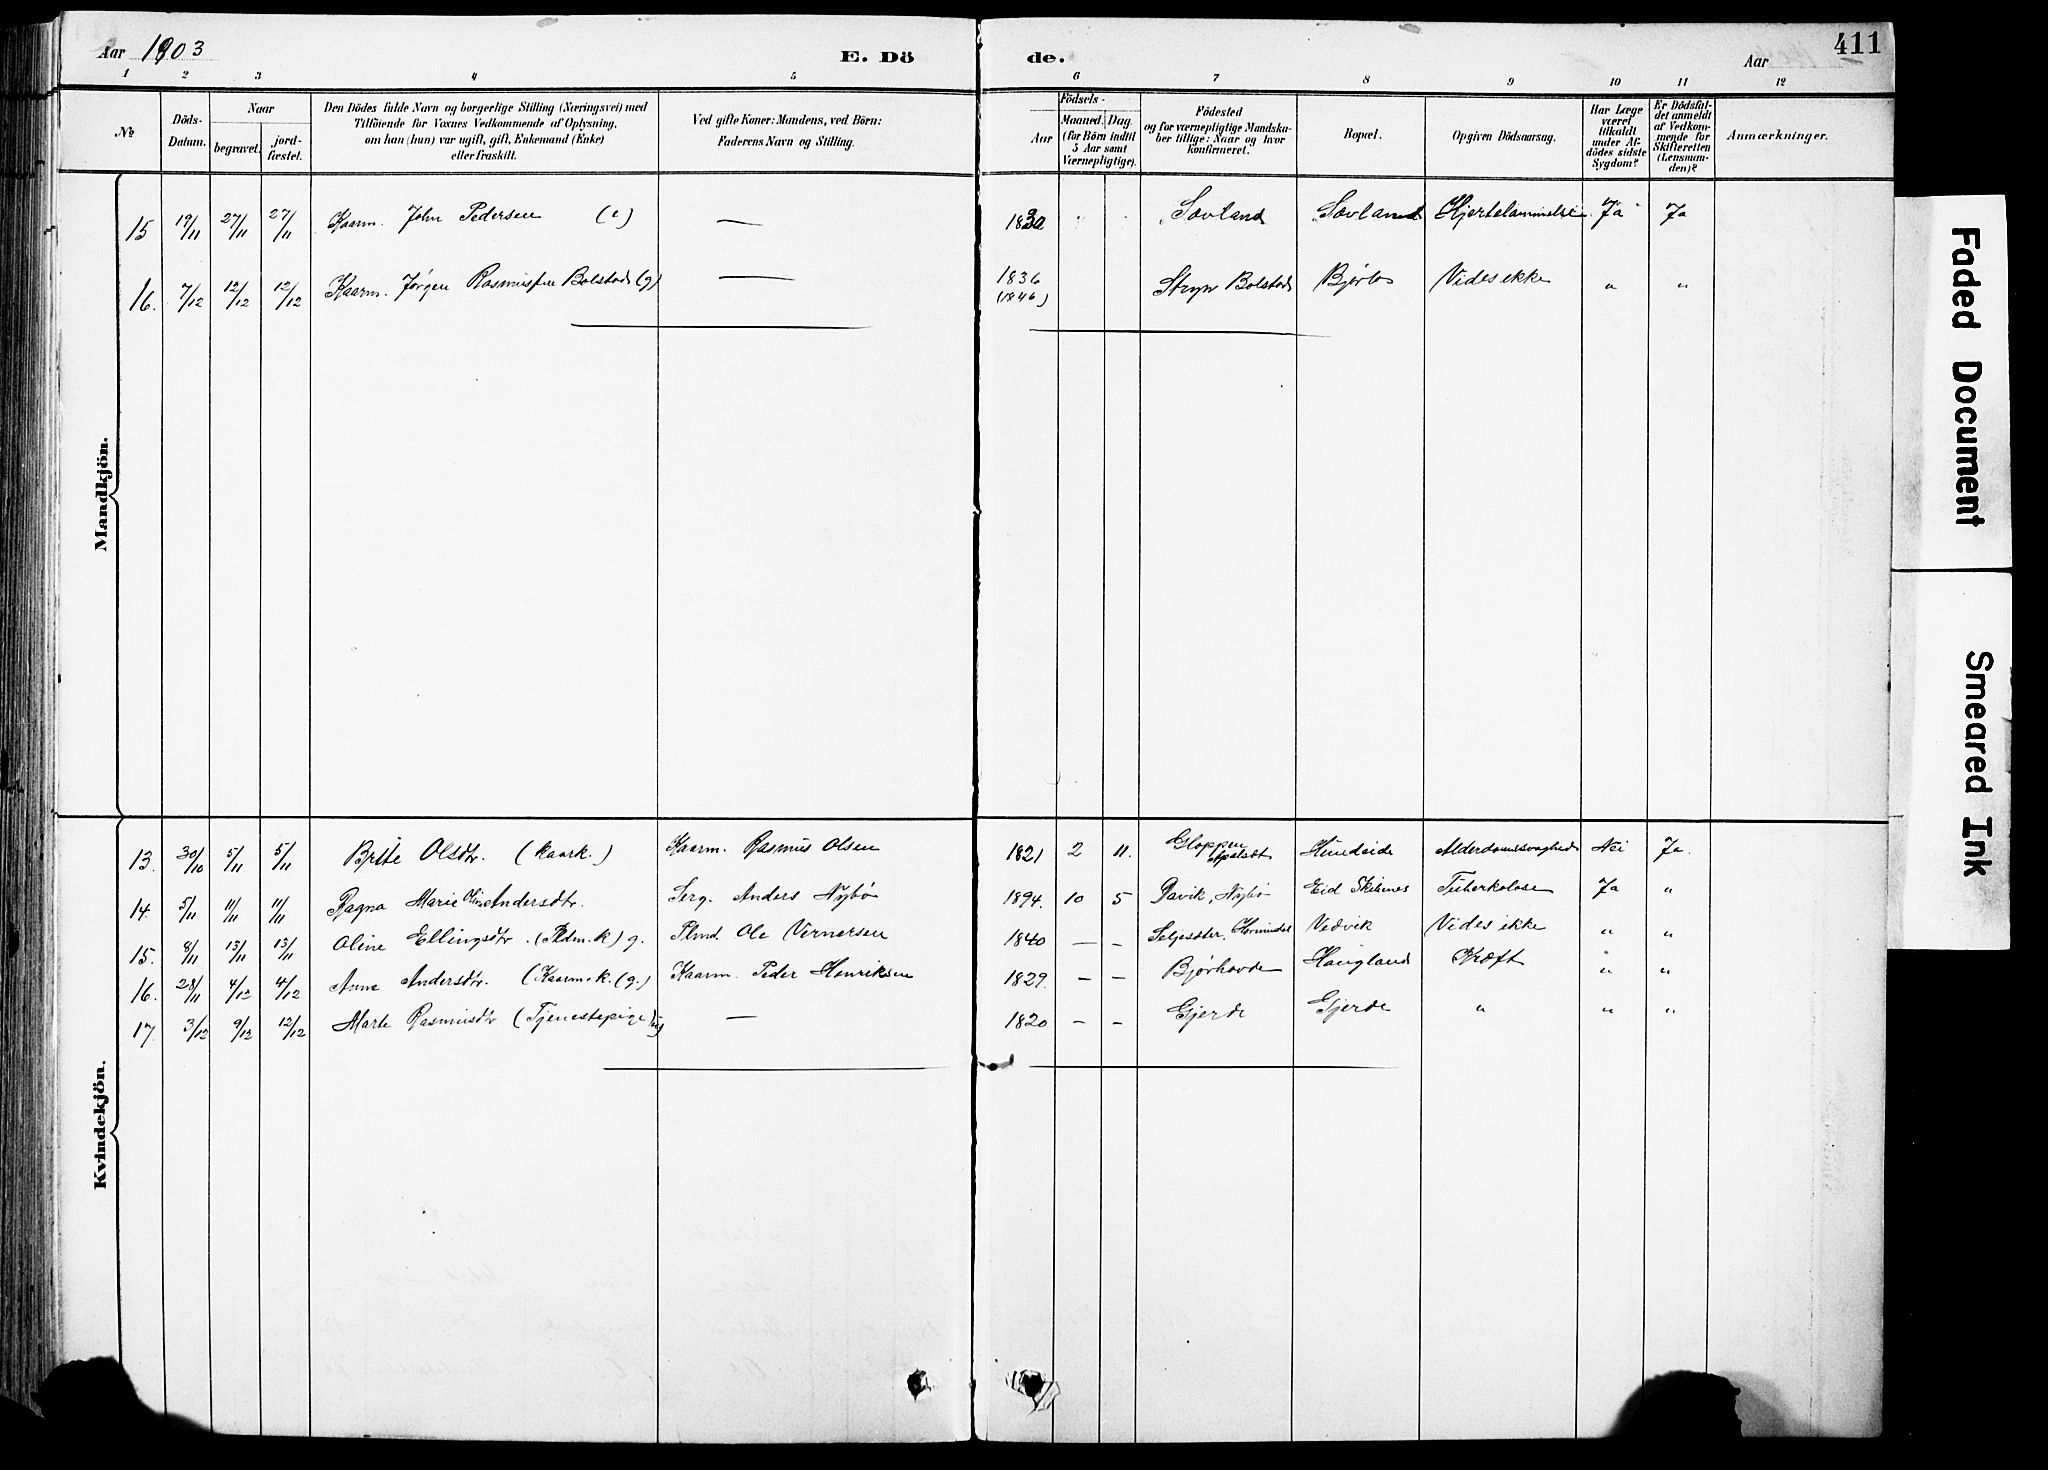 Aar 1903
E. Dö
de.
Aar
411
1 2 3 4 5 6 7 8 9 10 11 12
№
Döds-
Datum.
Naar
begravet.
jord-
fæstet.
Den Dödes fulde Navn og borgerlige Stilling (Næringsvei) med
Tilföiende for Voxnes Vedkommende af Oplysning,
om han (hun) var ugift, gift, Enkemand (Enke)
eller fraskilt.
Ved gifte Koner: Mandens, ved Börn:
Faderens Navn og Stilling.
Födsels-
Aar
Maaned. Dag.
(for Börn indtil
5 Aar samt
Værnepligtige).
Födested
og for værnepligtige Mandska-
ber tillige: Naar og hvor
konfirmeret.
Bopæl.
Opgiven Dödsaarsag.
Har Læge
været
tilkaldt
under Af-
dödes sidste
Sygdom?
Er Dödsfal-
det anmeldt
af Vedkom-
mende for
Skifteretten
(Lensman-
den)?
Anmærkninger.
Mandkjön.
15 19/11 27/11 27/11 Kaarm. John Pedersen (e) — Sævland Sævland Hjertelammelse Ja Ja
16. 7/12 12/12 12/12 Kaarm. Jørgen Rasmussen Bolstad (g) — 1836 Stryn Bolstad Bjørlo Vides ikke " "
(1846)
Kvindekjön.
13. 30/10 5/11 5/11 Brite Olsdtr. (kaark.) Kaarm. Rasmus Olsen 1821 2 11. Gloppen Hundeide Alderdomssvaghed Nei Ja.
14. 5/11 11/11 11/11 Ragna Marie Andersdtr. Serg. Anders Nybø 1894. 10 5 Davik, Nybø Eid Ja "
15. 8/11 13/11 13/11 Oline Ellingsdtr. (Pldm.k) g. Plmd. Ole Vernersen 1840 — — Vedvik Vides ikke " "
16. 28/11 4/12 4/12 Anne Andersdtr. (Kaarm.k. (g.) Kaarm. Peder Henriksen 1829. — — Bjørhovde Haugland Kræft " "
17. 3/12 9/12 12/12 Marte Rasmusdtr (Tjenestepige) — 1820 — — Gjerde Gjerde " " "
Faded Document
Smeared Ink